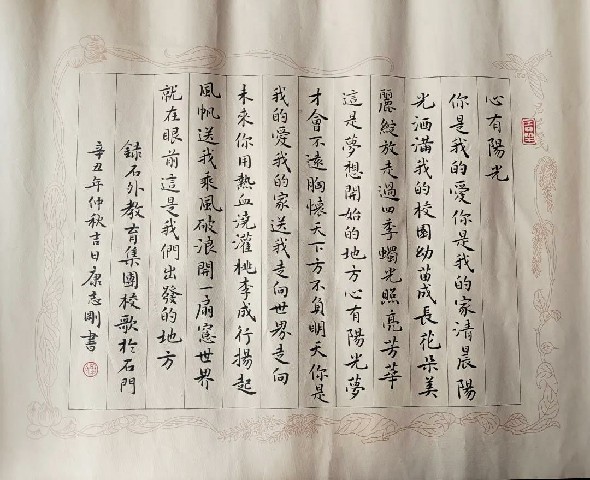 心有陽光
你是我的愛你是我的家清晨陽
光洒滿我的校園幼苗成長花朵美
麗綻放走過四季蠋光照亮芳華
這是夢想開始的地方心有陽光夢
才會不遠胸懷天下方不負明天你是
我的愛我的家送我走向世界走向
未來你用熱血澆灌桃李成行揚起
風帆送我乘風破浪開一扇窻世界
就在眼前這是我們出發的地方
録石外教育集團校歌於石門
辛丑年仲秋吉日康志剛書